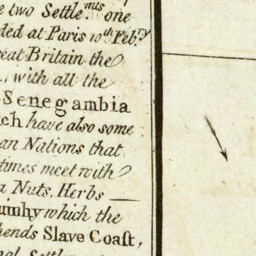 e two Settle.mts one
ded at Paris 10th Feb.ry
reat Britain the
, with all the
Senegambia
ch have also some
an Nations that
times meet with
a Nuts, Herbs
uinhy which the
hends Slave Coast,